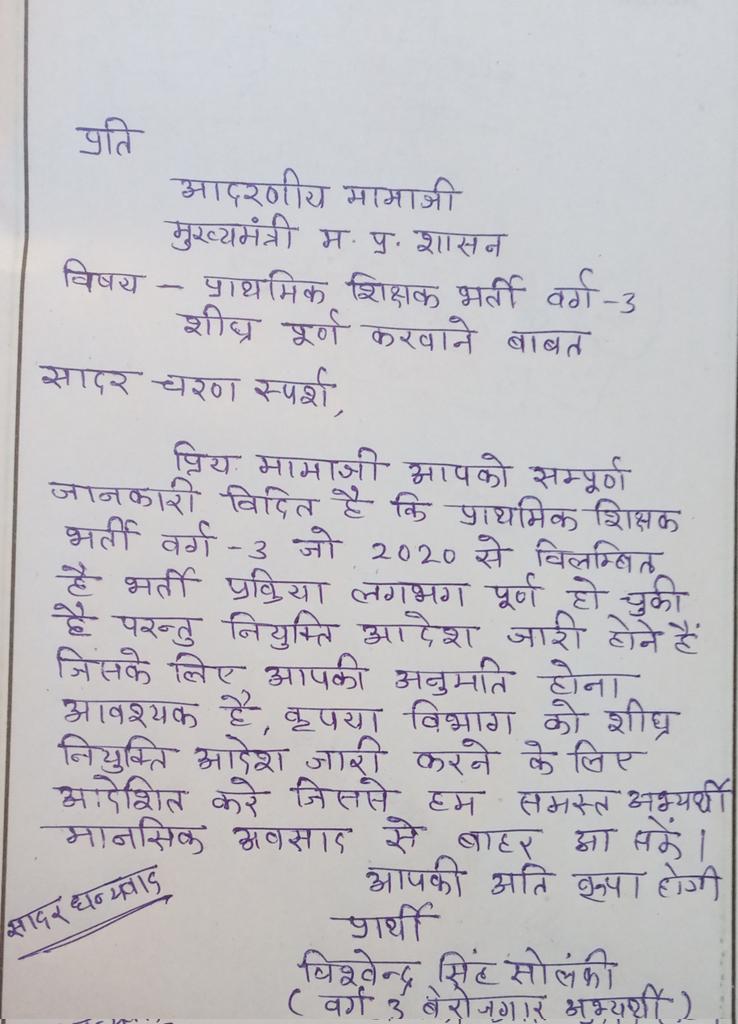 प्रति
आदरणीय मामाजी
मुख्यमंत्री म. प्र. शासन
विषय – प्राथमिक शिक्षक भर्ती वर्ग -3
शीघ्र पूर्ण करवाने बाबत
सादर चरण स्पर्श,
प्रिय मामाजी आपको सम्पूर्ण
जानकारी विदित है कि प्राथमिक शिक्षक
भर्ती वर्ग -3 जो 2020 से विलम्बित
है भर्ती प्रक्रिया लगभग पूर्ण हो चुकी
है परन्तु नियुक्ति आदेश जारी होने हैं
जिसके लिए आपकी अनुमति होना
आवश्यक है, कृपया विभाग को शीघ्र
नियुक्ति आदेश जारी करने के लिए
आदेशित करे जिससे हम समस्त अभ्यर्थी
मानसिक अवसाद से बाहर आ सकें।
आपकी अति कृपा होगी
सादर धन्यवाद
प्रार्थी
विश्वेन्द्र सिंह सोलंकी
( वर्ग 3 बेरोजगार अभ्यर्थी )